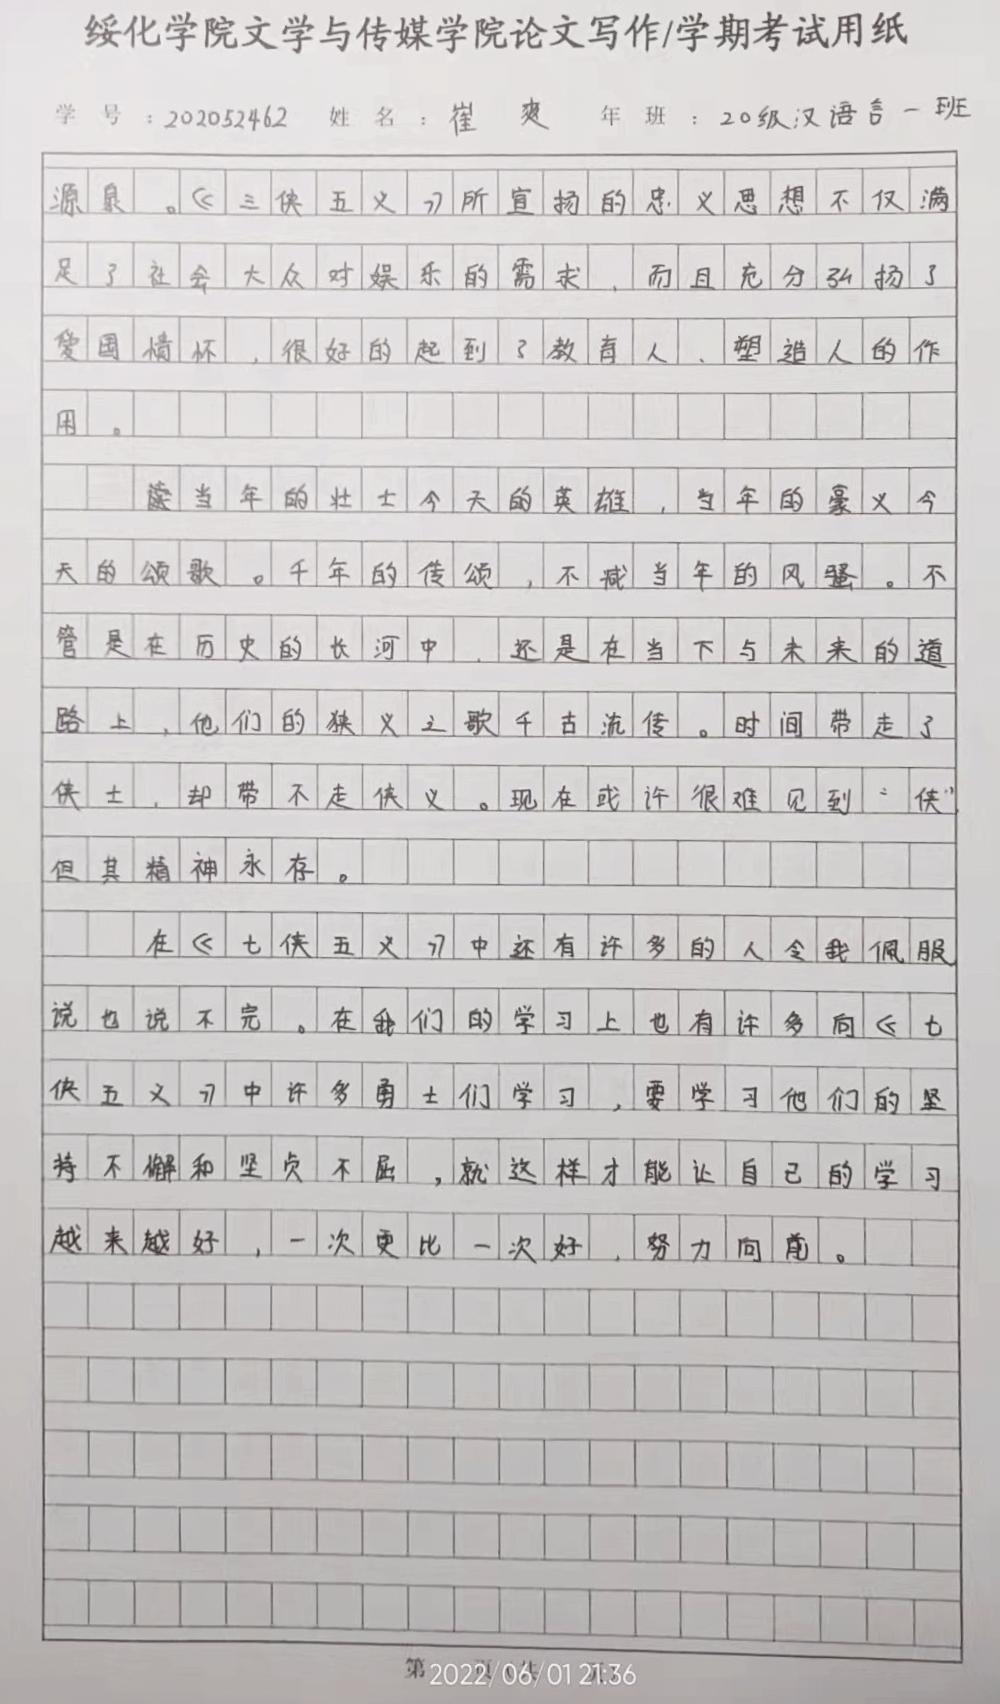 绥化学院文学与传媒学院论文写作/学期考试用纸
学号：202052462 姓名：崔爽 年班：20级汉语言一班
源泉。《三侠五义》所宣扬的忠义思想不仅满
足了社会大众对娱乐的需求，而且充分弘扬了
爱国情怀，很好的起到了教育人、塑造人的作
用。
当年的壮士今天的英雄，当年的豪义今
天的颂歌。千年的传颂，不减当年的风骚。不
管是在历史的长河中，还是在当下与未来的道
路上，他们的狭义之歌千古流传。时间带走了
侠士，却带不走侠义。现在或许很难见到“侠”，
但其精神永存。
在《七侠五义》中还有许多的人令我佩服
说也说不完。在我们的学习上也有许多向《七
侠五义》中许多勇士们学习，要学习他们的坚
持不懈和坚贞不屈，就这样才能让自己的学习
越来越好，一次更比一次好，努力向前。
第 页（共 页）
2022/06/01 21:36